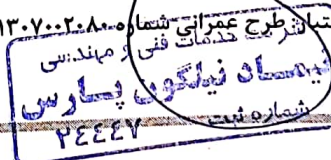 تبار طرح عمرانی شماره ۱۳۰۷۰۰۲۰۸۰
شرکت خدمات فنی و مهندسی
نیمساد نیلگون پارس
شماره ثبت
۲۴۴۴۷